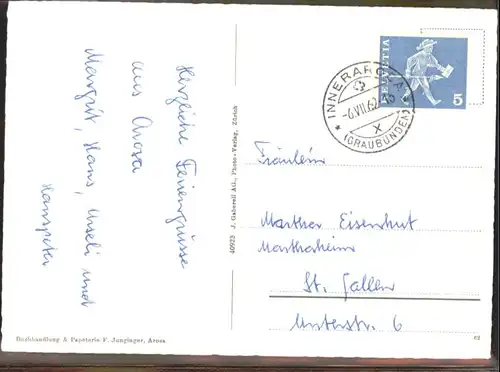 Herzliche Feriengrüsse
aus Arosa
Margrit, Hans, Urseli und
Hanspeter
40923 J. Gaberell AG., Photo-Verlag, Zürich
HELVETIA
5
INNERAROSA
-6.VII.62
X
(GRAUBÜNDEN)
Fräulein
Martha Eisenhut
Marthaheim
St. Gallen
Unterstr. 6
Buchhandlung & Papeterie F. Junginger, Arosa
62